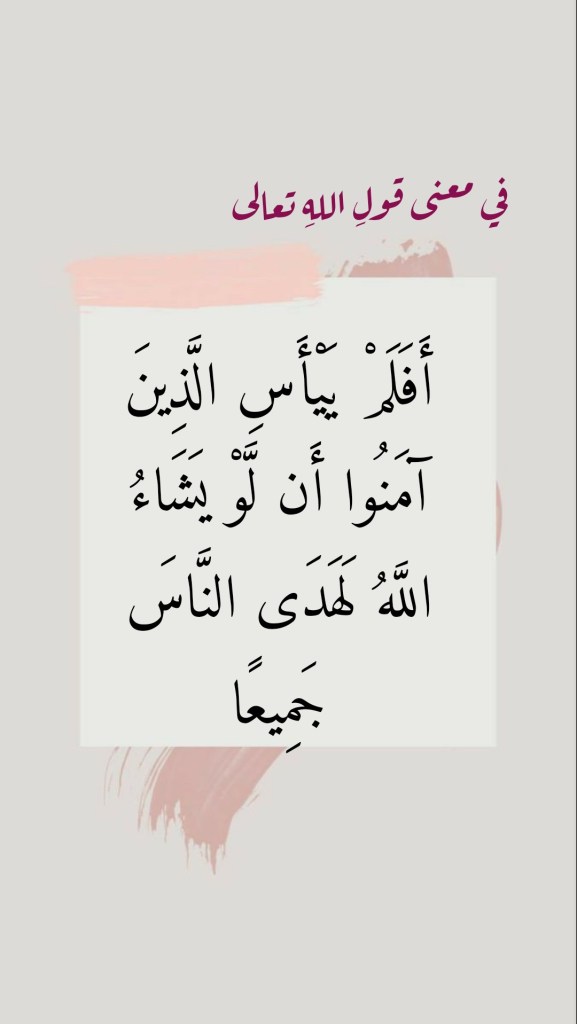 في معنى قولِ اللهِ تعالى
أَفَلَمْ يَيْأَسِ الَّذِينَ
آمَنُوا أَن لَّوْ يَشَاءُ
اللَّهُ لَهَدَى النَّاسَ
جَمِيعًا